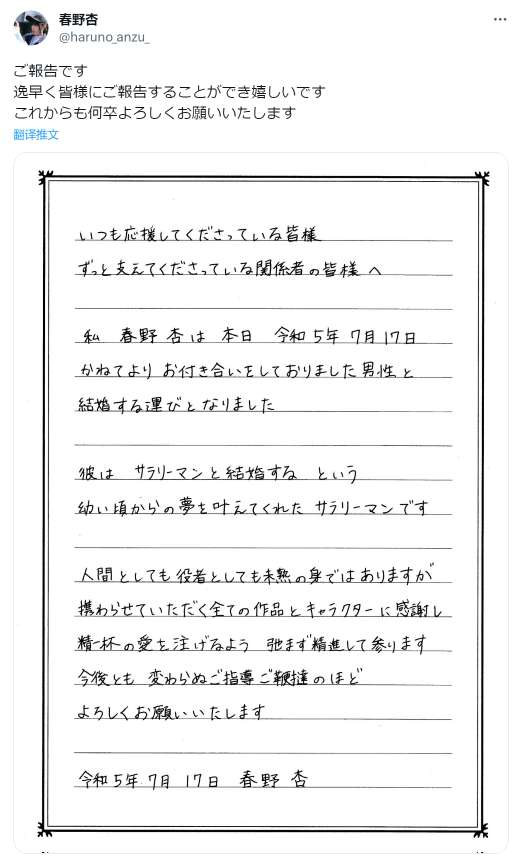 春野杏
@haruno_anzu_
ご報告です
逸早く皆様にご報告することができ嬉しいです
これからも何卒よろしくお願いいたします
翻译推文
いつも応援してくださっている皆様
ずっと支えてくださっている関係者の皆様へ
私 春野杏は 本日 令和5年7月17日
かねてより お付き合いをしておりました男性と
結婚する運びとなりました
彼は サラリーマンと結婚する という
幼い頃からの夢を叶えてくれた サラリーマンです
人間としても役者としても未熟の身ではありますが
携わらせていただく全ての作品とキャラクターに感謝し
精一杯の愛を注げるよう 弛まず精進して参ります
今後とも 変わらぬご指導ご鞭撻のほど
よろしくお願いいたします
令和5年7月17日 春野 杏